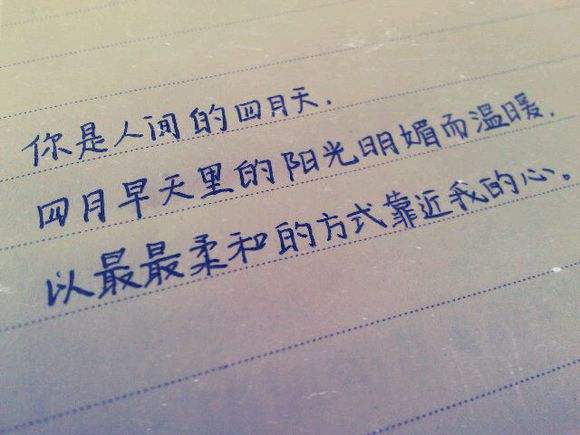 你是人间的四月天.
四月早天里的阳光明媚而温暖.
以最最柔和的方式靠近我的心。